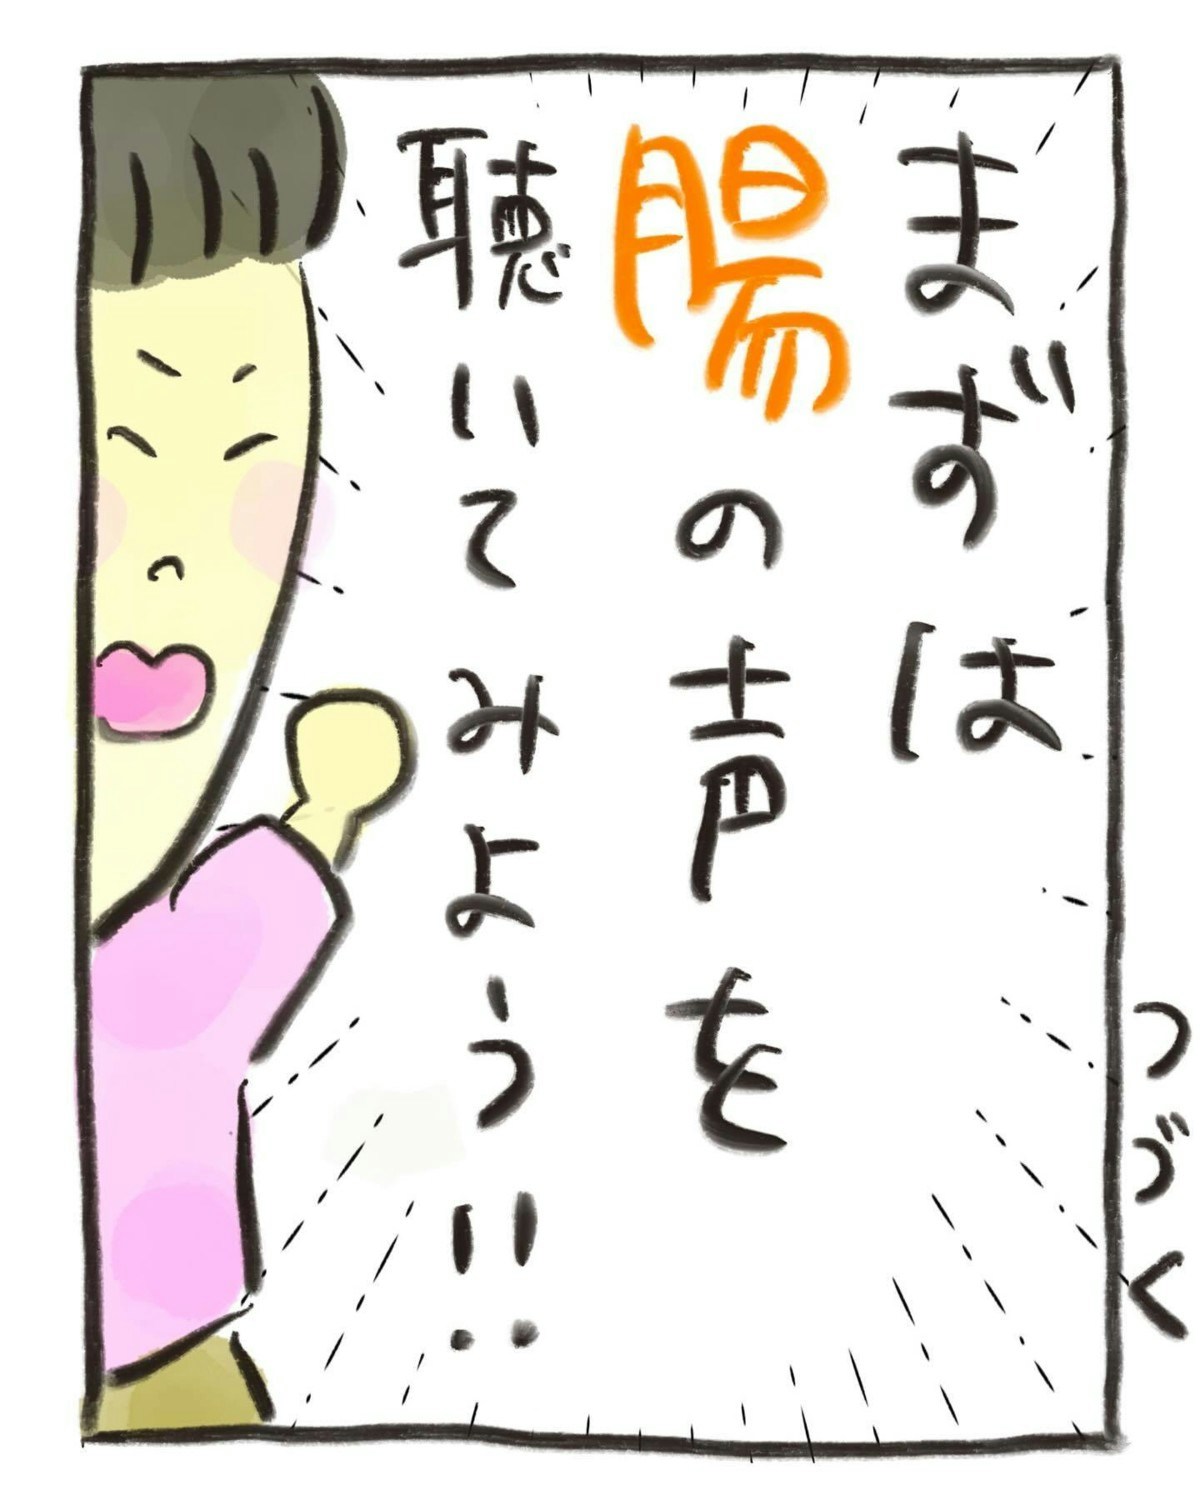 まずは
腸の声を
聴いてみよう!!
つづく